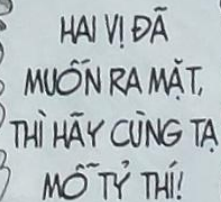 HAI VỊ ĐÃ
MUỐN RA MẶT,
THÌ HÃY CÙNG TA
MỖ TỶ THÍ!